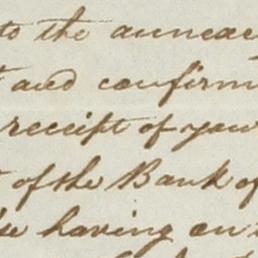 to the annexe
and confirm
receipt of your
of the Bank of
having on